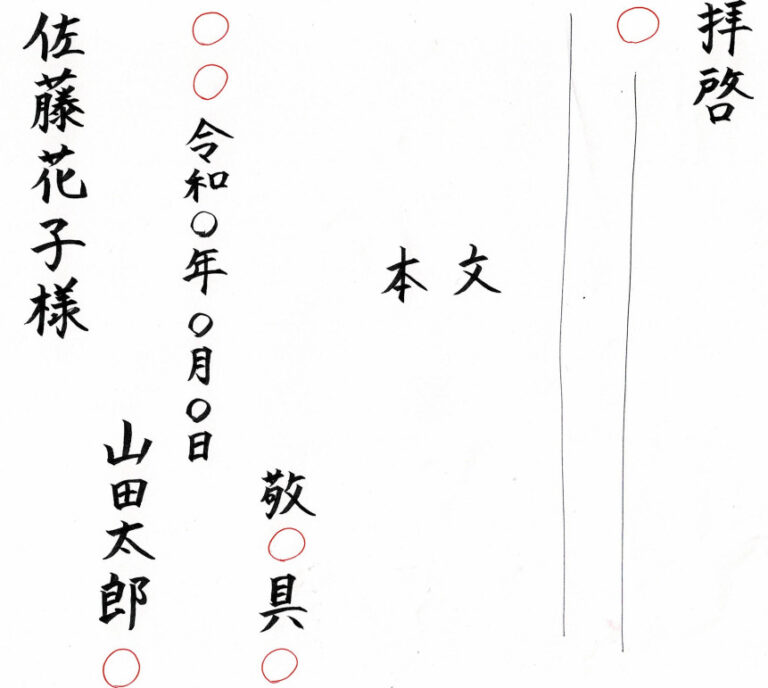 拝啓
○
本文
敬○具○
○○令和〇年〇月〇日
山田太郎○
佐藤花子様